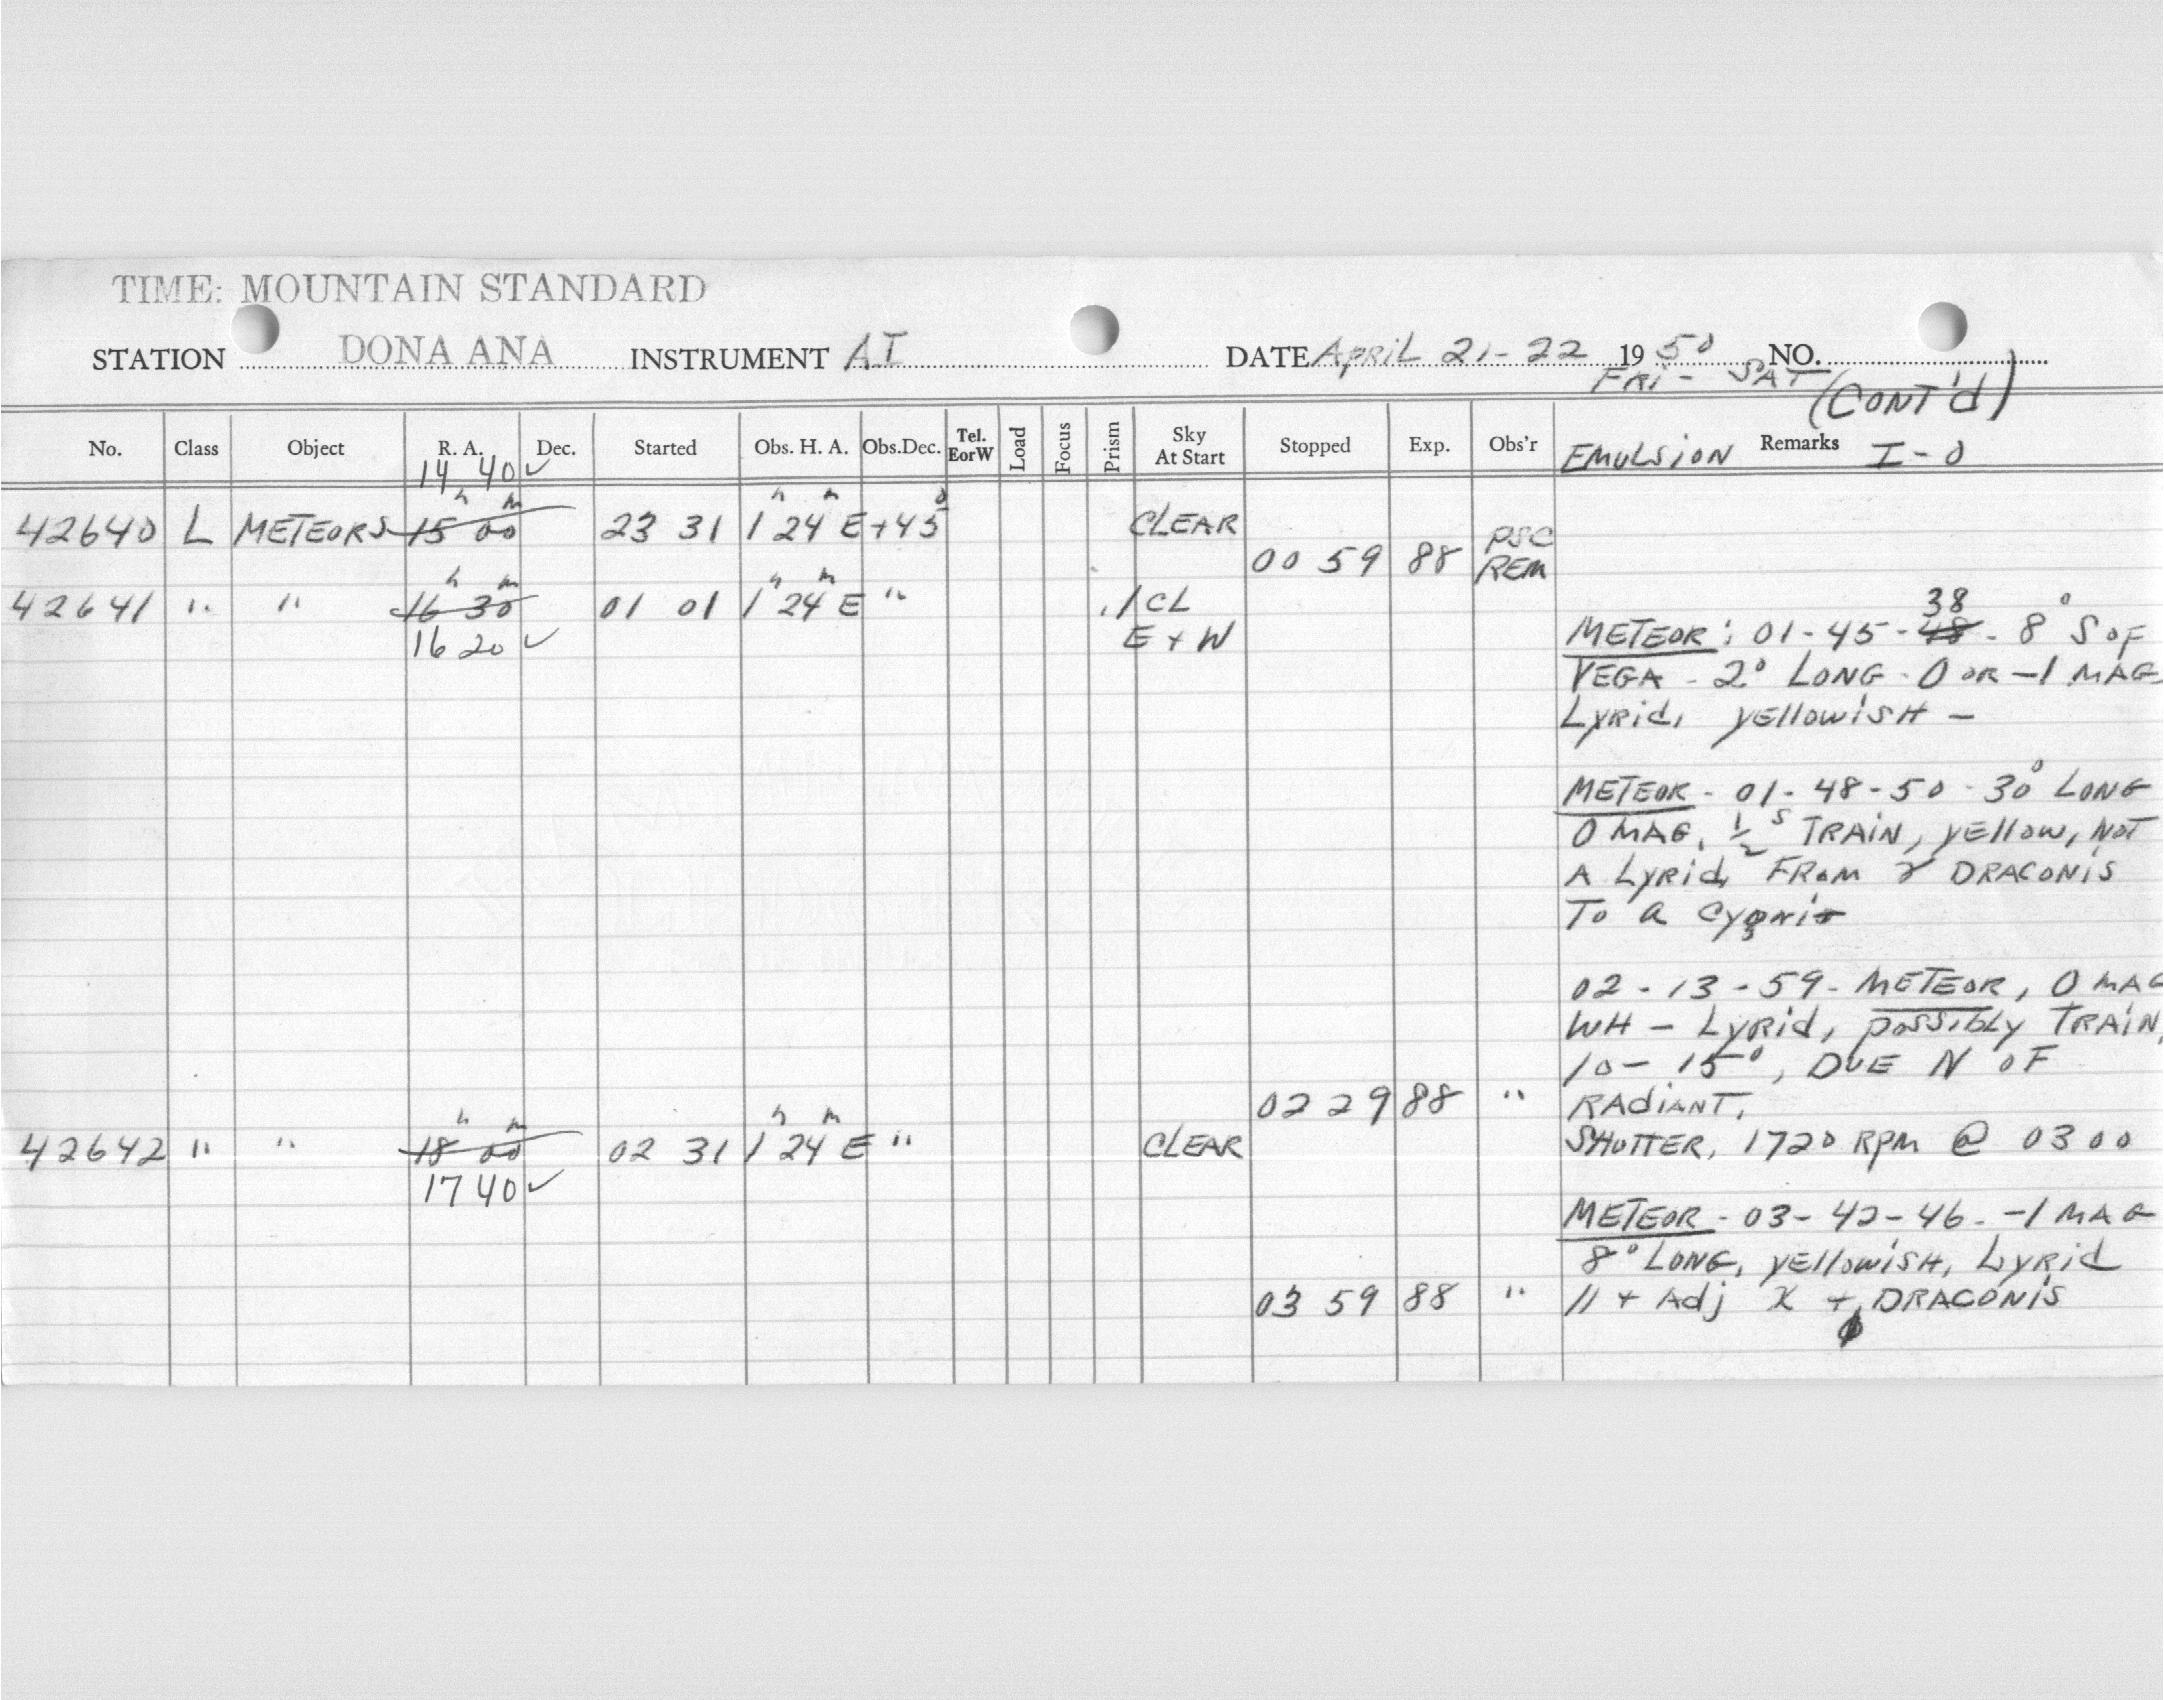 TIME: MOUNTAIN STANDARD
STATION DONA ANA INSTRUMENT AI DATE APRIL 21-22 1950 NO.
FRI - SAT (CONT'd)
No. Class Object R. A. Dec. Started Obs. H. A. Obs.Dec. Tel. EorW Load Focus Prism Sky At Start Stopped Exp. Obs'r EMULSION Remarks I-O
14 40 ✓
42640 L METEORS 15h 00m 23 31 1h 24m E +45° CLEAR
00 59 88 PSC REM
42641 " " 16h 30m 01 01 1h 24m E " .1 CL
16 20 ✓ E + W
38
METEOR: 01-45-48 - 8° S OF
VEGA - 2° LONG - 0 OR -1 MAG
LYRid, yEllowiSH -
METEOR - 01-48-50 - 30° LONG
0 MAG, 1/2 s TRAIN, yEllow, NOT
A LyRid, FROM γ DRACONIS
TO α Cygni
02-13-59 - METEOR, 0 MAG
WH - LyRid, possibly TRAIN,
10-15°, DUE N OF
02 29 88 " RADIANT.
42642 " " 18h 00m 02 31 1h 24m E " CLEAR SHUTTER, 1720 RPM @ 0300
17 40 ✓
METEOR - 03-42-46 - -1 MAG
8° LONG, yEllowiSH, LyRid
03 59 88 " // + Adj χ + φ DRACONIS